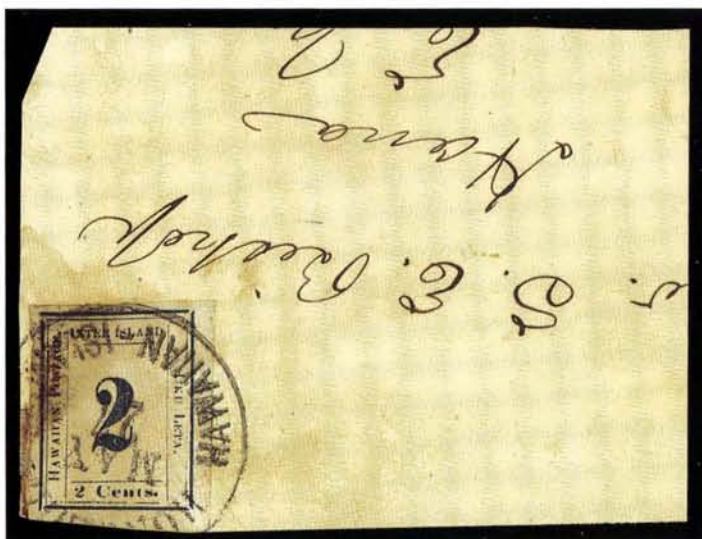 S. E. Bishop
Hana
INTER ISLAND
HAWAIIAN POSTAGE.
UKU LETA.
2
2 Cents.
HAWAIIAN
MAY